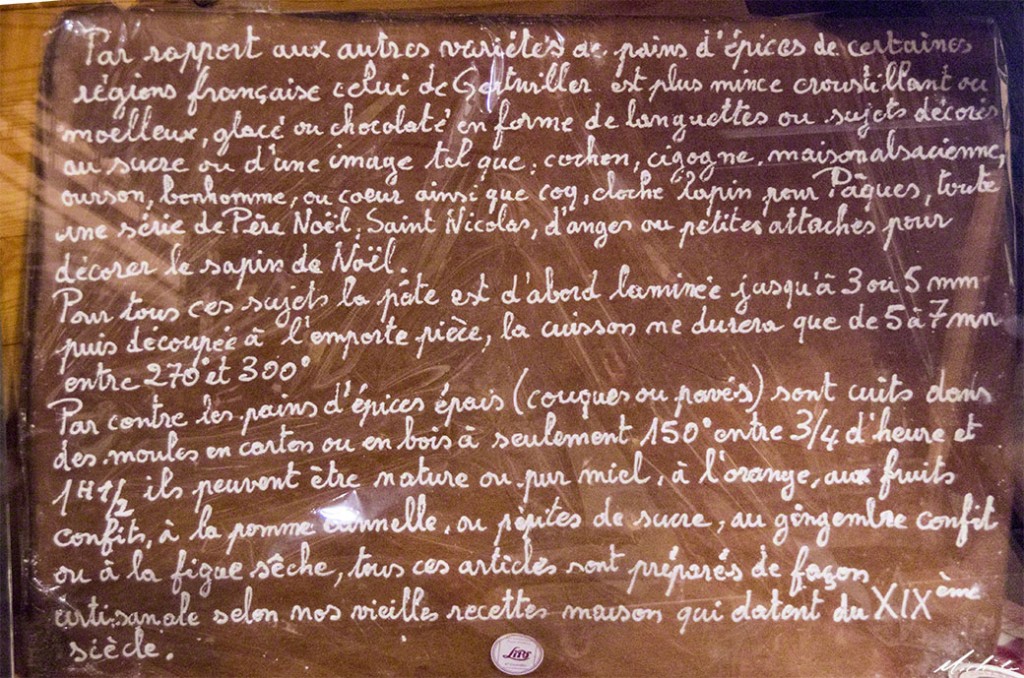 Par rapport aux autres variétés de pains d'épices de certaines
régions française celui de Gertwiller est plus mince croustillant ou
moelleux, glacé ou chocolaté en forme de languettes ou sujets décorés
au sucre ou d'une image tel que: cochon, cigogne, maison alsacienne,
ourson, bonhomme, ou coeur ainsi que coq, cloche lapin pour Pâques, toute
une série de Père Noël, Saint Nicolas, d'anges ou petites attaches pour
décorer le sapin de Noël.
Pour tous ces sujets la pâte est d'abord laminée jusqu'à 3 ou 5 mm
puis découpée à l'emporte pièce, la cuisson ne durera que de 5 à 7 mn
entre 270° et 300°
Par contre les pains d'épices épais (couques ou pavés) sont cuits dans
des moules en carton ou en bois à seulement 150° entre 3/4 d'heure et
1H 1/2 ils peuvent être nature ou pur miel, à l'orange, aux fruits
confits, à la pomme cannelle, ou pépites de sucre, au gingembre confit
ou à la figue sêche, tous ces articles sont préparés de façon
artisanale selon nos vieilles recettes maison qui datent du XIXème
siècle.
LIPS